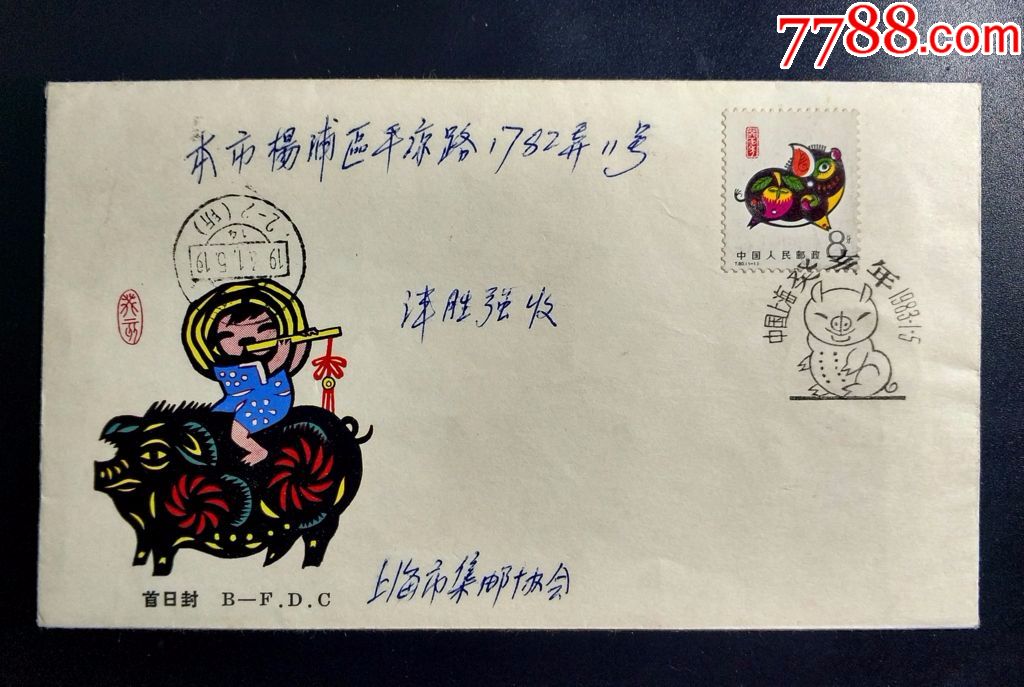 7788.com
本市楊浦區平凉路1782弄11号
癸亥年
中国人民邮政
8分
T.80.(1-1)
中国上海
癸亥年
1983·1·5
胜强收
上海市集邮协会
首日封 B—F.D.C